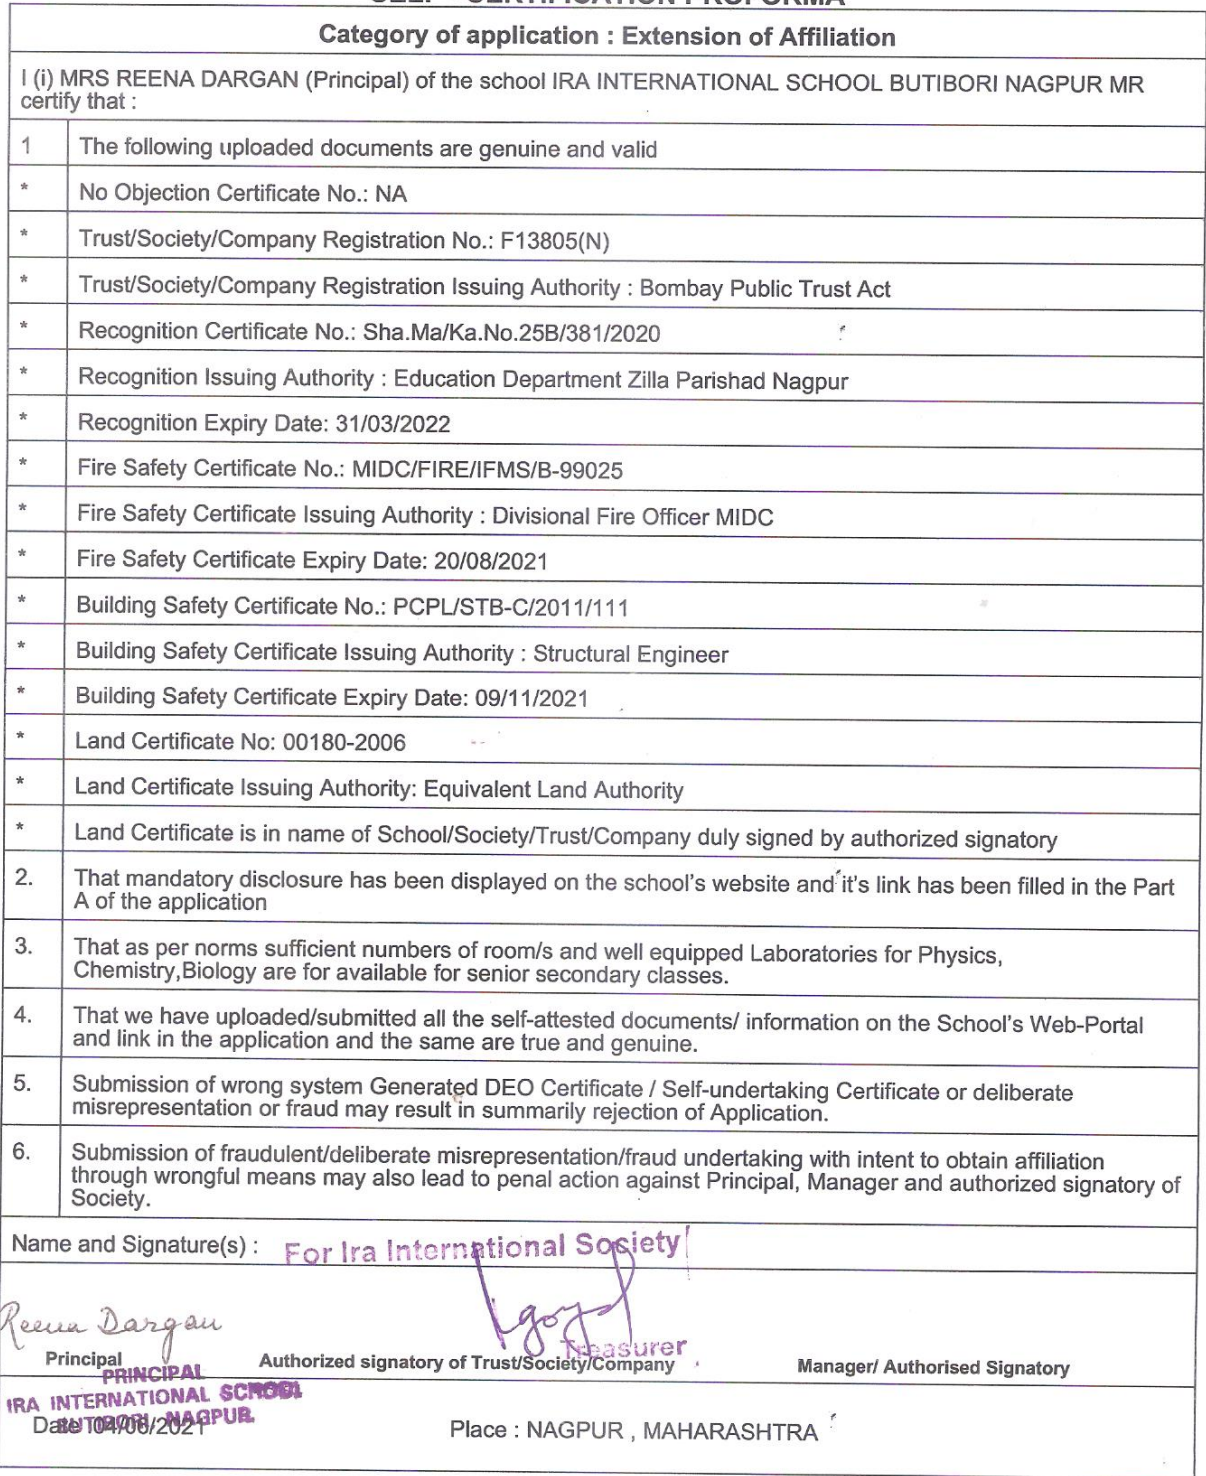 SELF - CERTIFICATION PROFORMA
Category of application : Extension of Affiliation
I (i) MRS REENA DARGAN (Principal) of the school IRA INTERNATIONAL SCHOOL BUTIBORI NAGPUR MR
certify that :
1 The following uploaded documents are genuine and valid
* No Objection Certificate No.: NA
* Trust/Society/Company Registration No.: F13805(N)
* Trust/Society/Company Registration Issuing Authority : Bombay Public Trust Act
* Recognition Certificate No.: Sha.Ma/Ka.No.25B/381/2020
* Recognition Issuing Authority : Education Department Zilla Parishad Nagpur
* Recognition Expiry Date: 31/03/2022
* Fire Safety Certificate No.: MIDC/FIRE/IFMS/B-99025
* Fire Safety Certificate Issuing Authority : Divisional Fire Officer MIDC
* Fire Safety Certificate Expiry Date: 20/08/2021
* Building Safety Certificate No.: PCPL/STB-C/2011/111
* Building Safety Certificate Issuing Authority : Structural Engineer
* Building Safety Certificate Expiry Date: 09/11/2021
* Land Certificate No: 00180-2006
* Land Certificate Issuing Authority: Equivalent Land Authority
* Land Certificate is in name of School/Society/Trust/Company duly signed by authorized signatory
2. That mandatory disclosure has been displayed on the school's website and it's link has been filled in the Part
A of the application
3. That as per norms sufficient numbers of room/s and well equipped Laboratories for Physics,
Chemistry,Biology are for available for senior secondary classes.
4. That we have uploaded/submitted all the self-attested documents/ information on the School's Web-Portal
and link in the application and the same are true and genuine.
5. Submission of wrong system Generated DEO Certificate / Self-undertaking Certificate or deliberate
misrepresentation or fraud may result in summarily rejection of Application.
6. Submission of fraudulent/deliberate misrepresentation/fraud undertaking with intent to obtain affiliation
through wrongful means may also lead to penal action against Principal, Manager and authorized signatory of
Society.
Name and Signature(s) : For Ira International Society
Reena Dargan
Treasurer
Principal Authorized signatory of Trust/Society/Company Manager/ Authorised Signatory
PRINCIPAL
IRA INTERNATIONAL SCHOOL
BUTIBORI, NAGPUR.
Date 04/06/2021 Place : NAGPUR , MAHARASHTRA